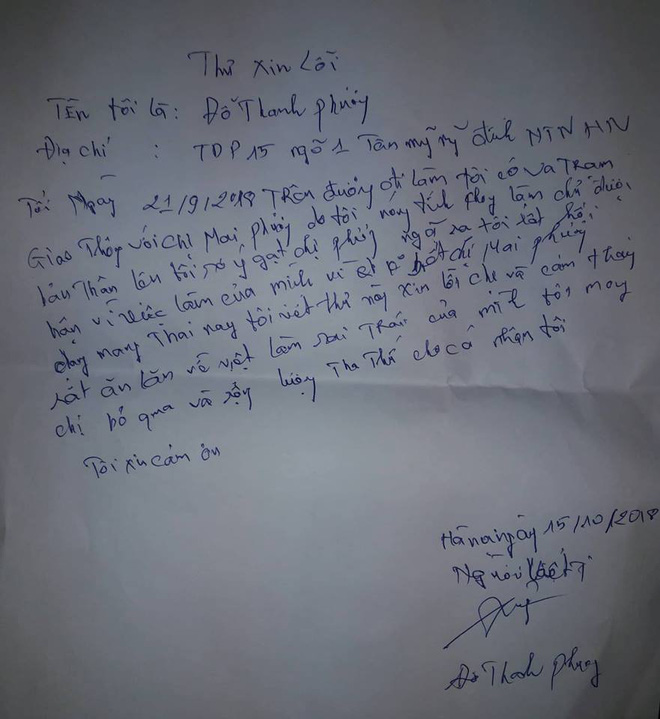 Thư xin Lỗi
TÊn tôi là: Đỗ Thanh Phượng
Địa chỉ : TDP 15 ngõ 1 Tân mỹ mỹ đình NTL HN
Tối Ngày 21/9/2018 TRên đường đi làm tôi có va TRạm
Giao Thông với chị Mai phương do tôi nóng tính không làm chủ được
bản Thân lên tôi có ý gạt chị phương ngã ra tôi rất hối
hận vì việc làm của mình vì biết chị Mai phương
đang mang Thai nay tôi viết thư này xin lỗi chị và cảm thấy
rất ăn lăn về việt làm sai Trái của mình tôi mong
chị bỏ qua và rộng lượng Tha Thứ cho cá nhân tôi
Tôi xin cảm ơn
Hà nội ngày 15/10/2018
Người viết
Đỗ Thanh Phượng